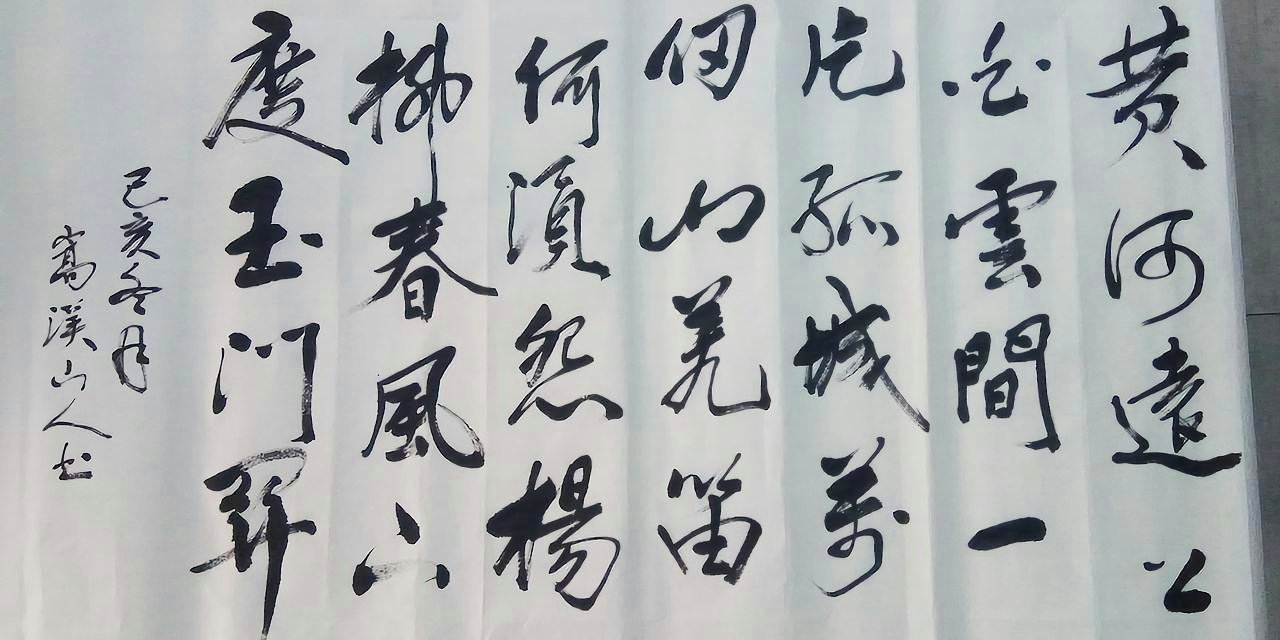 黄河遠上
白雲間一
片孤城萬
仞山羌笛
何須怨楊
柳春風不
度玉門關
己亥冬月
嵩溪山人书